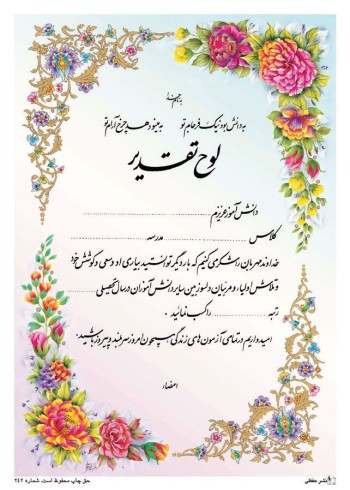 به نام خدا
به دانش بود نیک فرجام تو    به مینو دهد چرخ آرام تو
لوح تقدیر
دانش آموز عزیزم
کلاس ........ مدرسه ........
خداوند مهربان را شکر می کنیم که بار دیگر توانستید بیاری او و سعی و کوشش خود
و تلاش اولیاء و مربیان دلسوز بین سایر دانش آموزان در سال تحصیلی ........
رتبه ........ را کسب نمائید .
امیدواریم در تمامی آزمون های زندگی همچون امروز سربلند و پیروز باشید.
امضاء
نشر حافظی
حق چاپ محفوظ است. شماره ۲۴۲